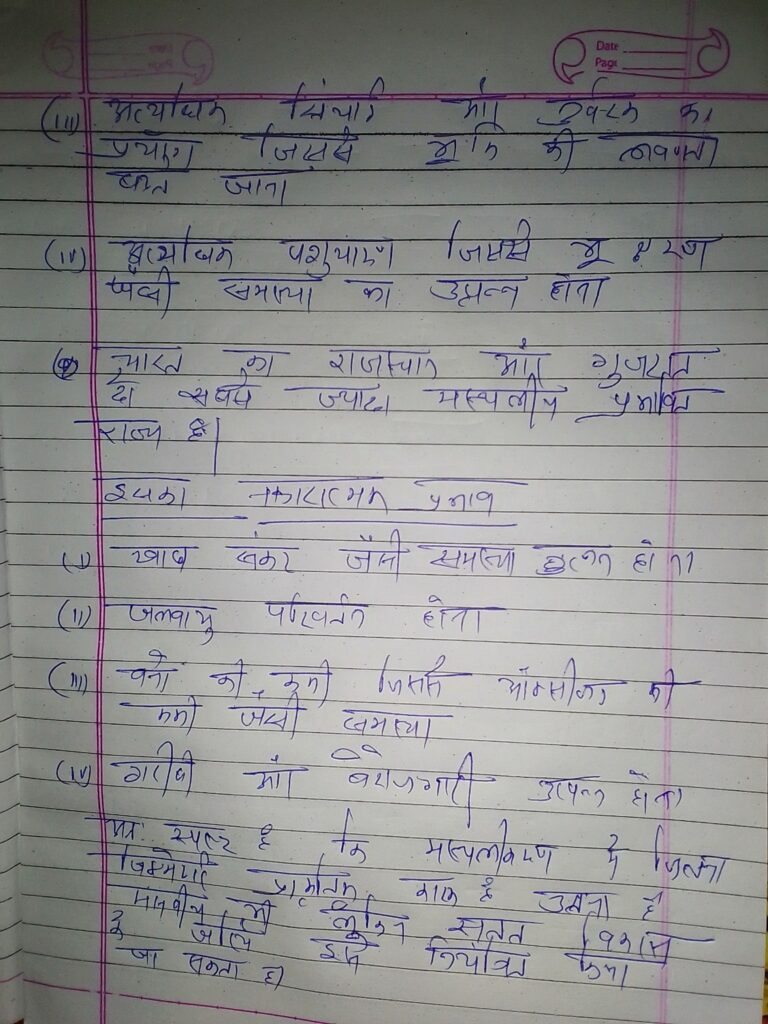 Date
Page
(iii) अत्यधिक सिंचाई और उर्वरक का
प्रयोग जिससे भूमि की लवणता
बढ़ जाता
(iv) अत्यधिक पशुचारण जिससे भू क्षरण
जैसी समस्या का उत्पन्न होता
भारत का राजस्थान और गुजरात
दो सबसे ज्यादा मरुस्थलीय प्रभावित
राज्य है।
इसका नकारात्मक प्रभाव
(i) खाद्य संकट जैसी समस्या उत्पन्न होना
(ii) जलवायु परिवर्तन होना
(iii) वनो की कमी जिससे ऑक्सीजन की
कमी जैसी समस्या
(iv) गरीबी और बेरोजगारी उत्पन्न होना
अतः स्पष्ट है कि मरुस्थलीकरण में जितना
जिम्मेदार प्राकृतिक कारक है उतना है
मानवीय भी लेकिन सतत विकास
के जरिए इसे नियंत्रित किया
जा सकता है।